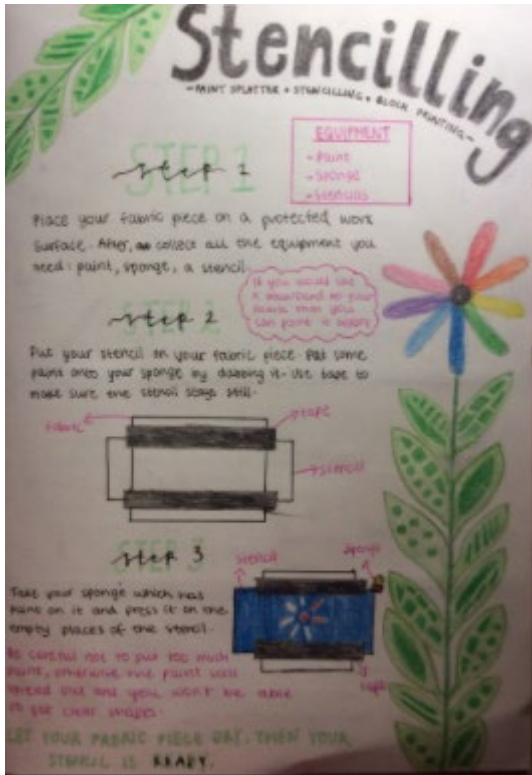 Stencilling
- PAINT SPLATTER + STENCILLING + BLOCK PRINTING -
EQUIPMENT
- Paint
- Sponge
- Stencils
STEP 1
step 1
Place your fabric piece on a protected work
surface. After, collect all the equipment you
need: paint, sponge, a stencil.
If you would like
a background to your
then you
can paint it before
STEP 2
step 2
Put your stencil on your fabric piece. Put some
paint onto your sponge by dabbing it. Use tape to
make sure the stencil stays still.
fabric
tape
stencil
STEP 3
step 3
stencil
sponge
Take your sponge which has
paint on it and press it on the
empty places of the stencil.
Be careful not to put too much
paint, otherwise the paint will
spread out and you won't be able
to get clear shapes.
tape
LET YOUR FABRIC PIECE DRY, THEN YOUR
STENCIL IS READY.